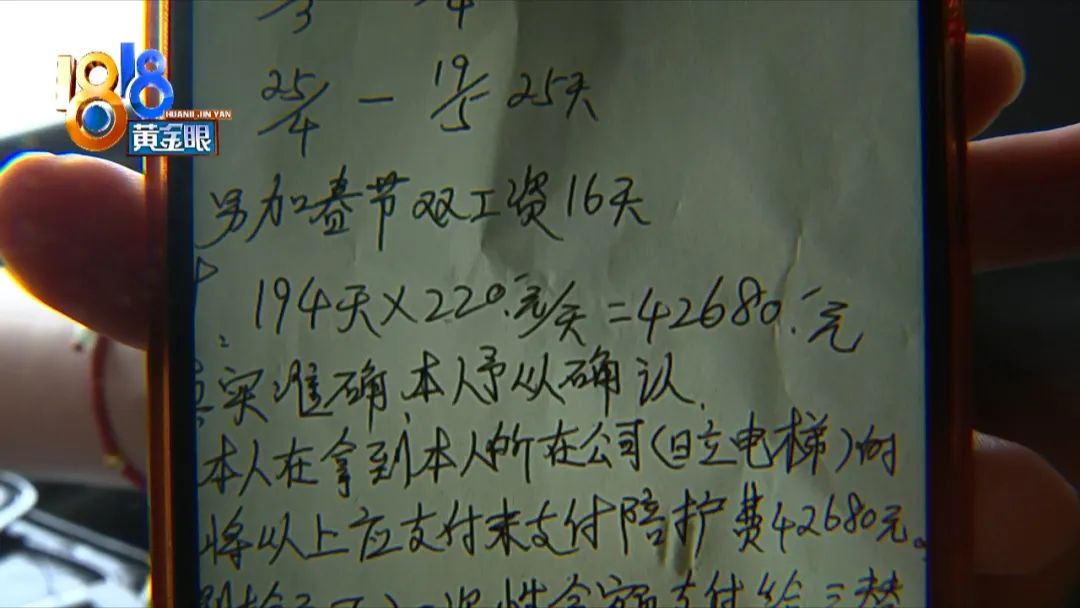 1818
HUANG JIN YAN
黄金眼
/3 /4
25/4 — 19/5 25天
另加春节双工资16天
194天×220元/天=42680元
实准确,本人予以确认.
本人在拿到本人所在公司(日立电梯)的
将以上应支付未支付陪护费42680元。
一次性全额支付给三替